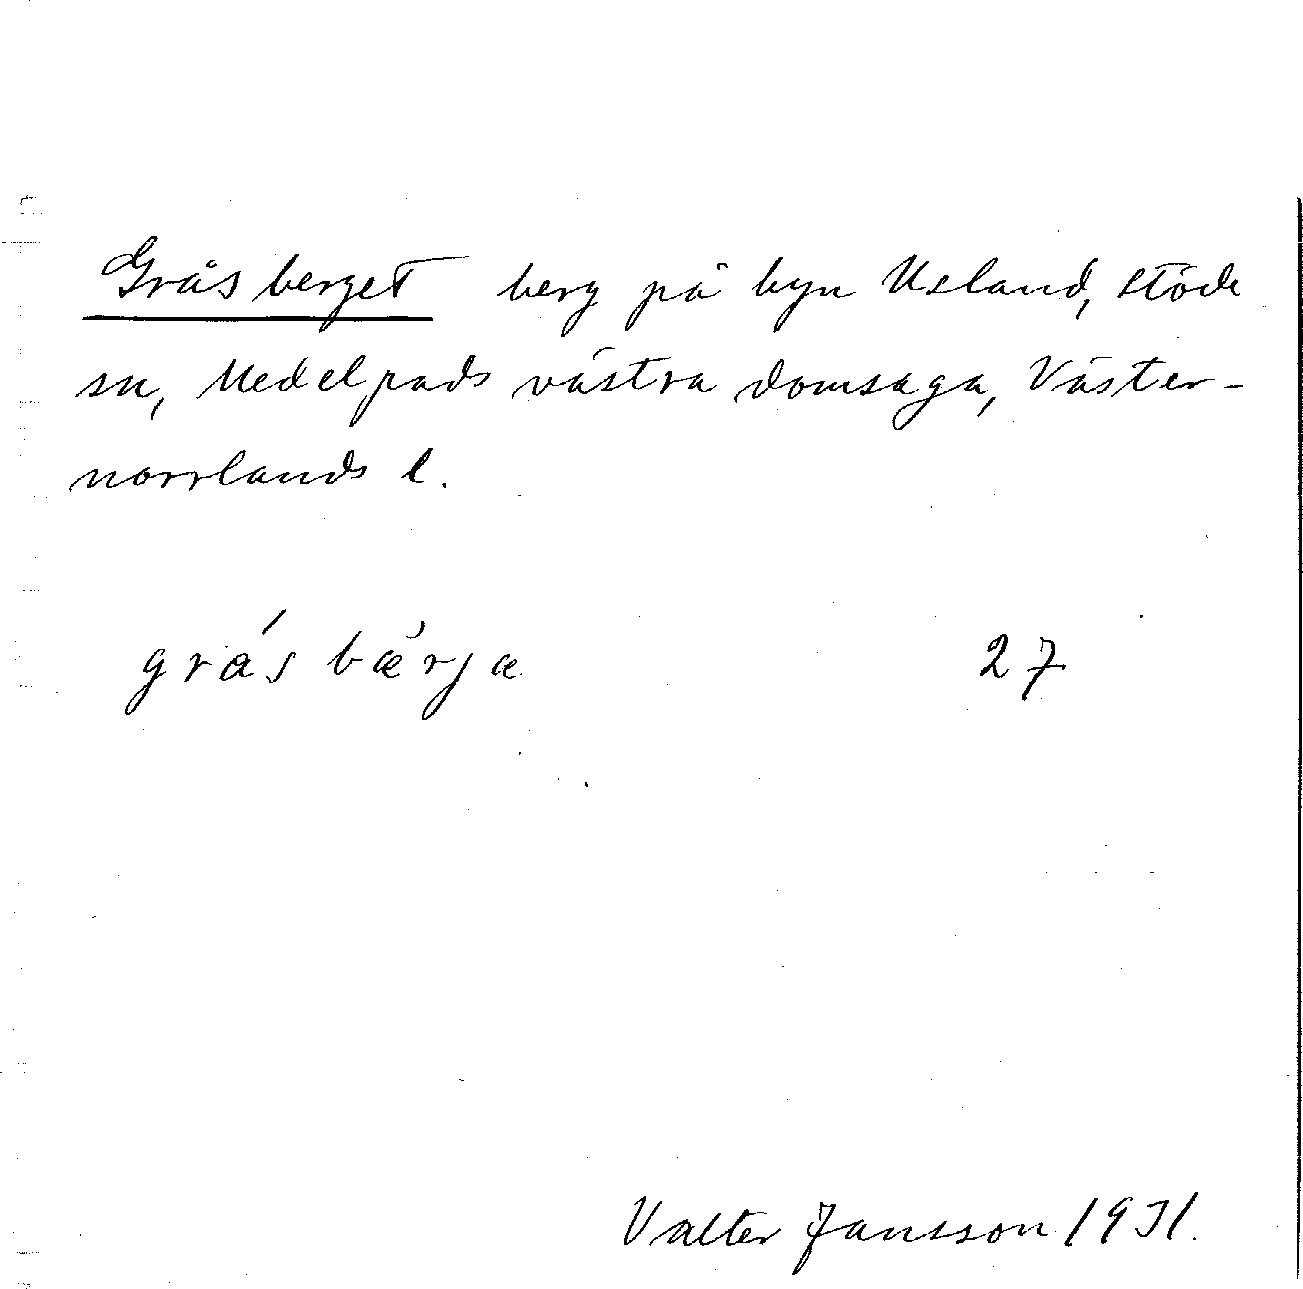 Gråsberget berg på byn Usland, Stöde
sn, Medelpads västra domsaga, Väster-
norrlands l.
grás bærjæ 27
Valter Jansson 1931.